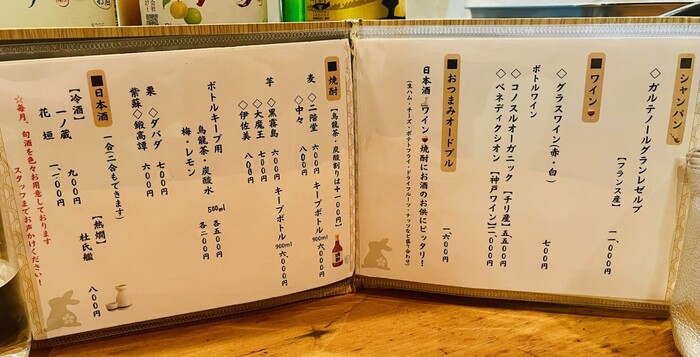 ■シャンパン
◇ガルテノールグランレゼルブ
【フランス産】
一一、〇〇〇円
■ワイン
◇グラスワイン(赤・白)
七〇〇円
ボトルワイン
◇コノスルオーガニック【チリ産】五五〇〇円
◇ベネディクシオン【神戸ワイン】一二、〇〇〇円
■おつまみオードブル
一、六〇〇円
日本酒 ワイン 焼酎にお酒のお供にピッタリ!
(生ハム・チーズ・ポテトフライ・ドライフルーツ・ナッツなど盛り合わせ)
■焼酎
【烏龍茶・炭酸割りは+一〇〇円】
麦
◇二階堂 六〇〇円 キープボトル 900ml 六、〇〇〇円
◇中々 八〇〇円
芋
◇黒霧島 六〇〇円 キープボトル 900ml 六、〇〇〇円
◇大魔王 七〇〇円
◇伊佐美 八〇〇円
ボトルキープ用
烏龍茶・炭酸水 500ml 各五〇〇円
梅・レモン 各二〇〇円
栗
◇ダバダ 七〇〇円
紫蘇
◇鍛高譚 六〇〇円
■日本酒
一合(二合もできます)
【冷酒】
一ノ蔵 九〇〇円
花垣 一、二〇〇円
【熱燗】
杜氏鑑 八〇〇円
☆毎月、旬酒を色々お用意しております
スタッフまでお声かけください!